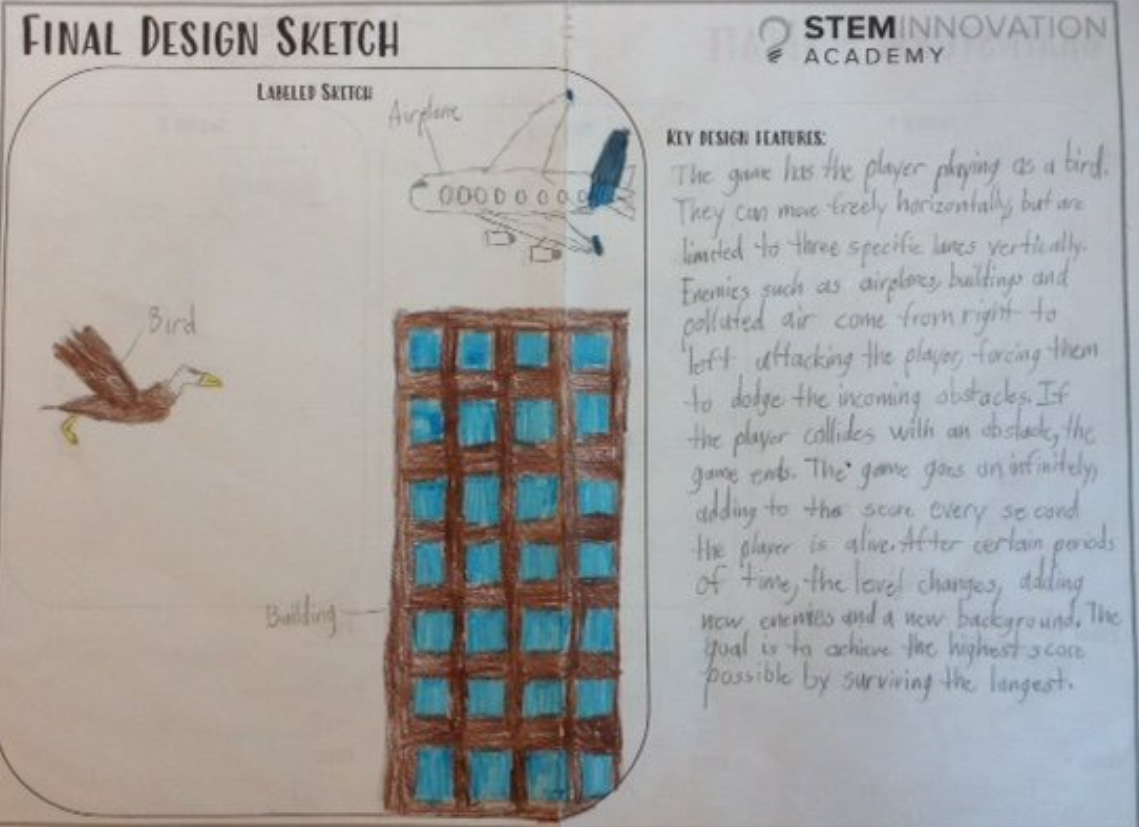 FINAL DESIGN SKETCH
STEMINNOVATION
ACADEMY
LABELED SKETCH
Airplane
Bird
Building
KEY DESIGN FEATURES:
The game has the player playing as a bird.
They can move freely horizontally, but are
limited to three specific lanes vertically.
Enemies such as airplanes, buildings and
polluted air come from right to
left attacking the player, forcing them
to dodge the incoming obstacles. If
the player collides with an obstacle, the
game ends. The game goes on infinitely,
adding to the score every second
the player is alive. After certain periods
of time, the level changes, adding
new enemies and a new background. The
goal is to achieve the highest score
possible by surviving the longest.